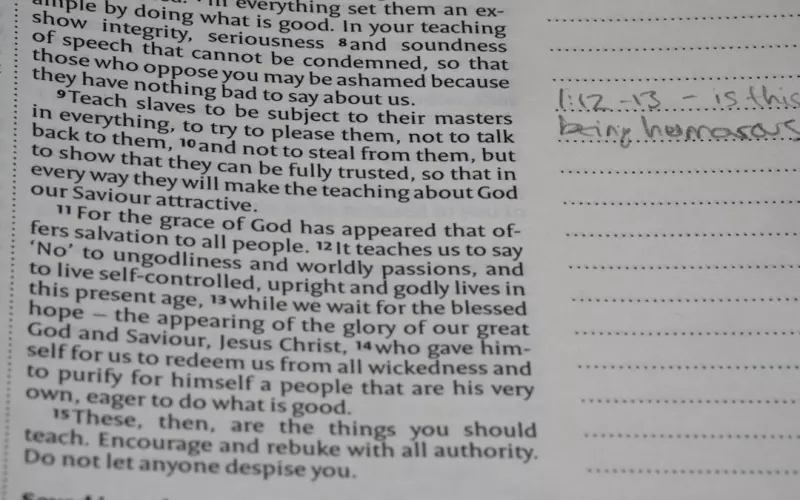 in everything set them an ex-
ample by doing what is good. In your teaching
show integrity, seriousness 8 and soundness
of speech that cannot be condemned, so that
those who oppose you may be ashamed because
they have nothing bad to say about us.
9 Teach slaves to be subject to their masters
in everything, to try to please them, not to talk
back to them, 10 and not to steal from them, but
to show that they can be fully trusted, so that in
every way they will make the teaching about God
our Saviour attractive.
11 For the grace of God has appeared that of-
fers salvation to all people. 12 It teaches us to say
‘No’ to ungodliness and worldly passions, and
to live self-controlled, upright and godly lives in
this present age, 13 while we wait for the blessed
hope – the appearing of the glory of our great
God and Saviour, Jesus Christ, 14 who gave him-
self for us to redeem us from all wickedness and
to purify for himself a people that are his very
own, eager to do what is good.
15 These, then, are the things you should
teach. Encourage and rebuke with all authority.
Do not let anyone despise you.
1:12 -13 - is this
being humorous